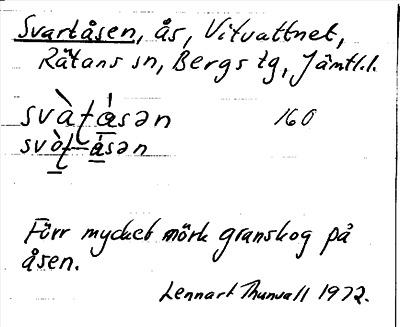 Svartåsen, ås, Vitvattnet,
Rätans sn, Bergs tg, Jämtl.l.
svàʈåsən 160
svòʈ-åsən
Förr mycket mörk granskog på
åsen.
Lennart Thunvall 1972.